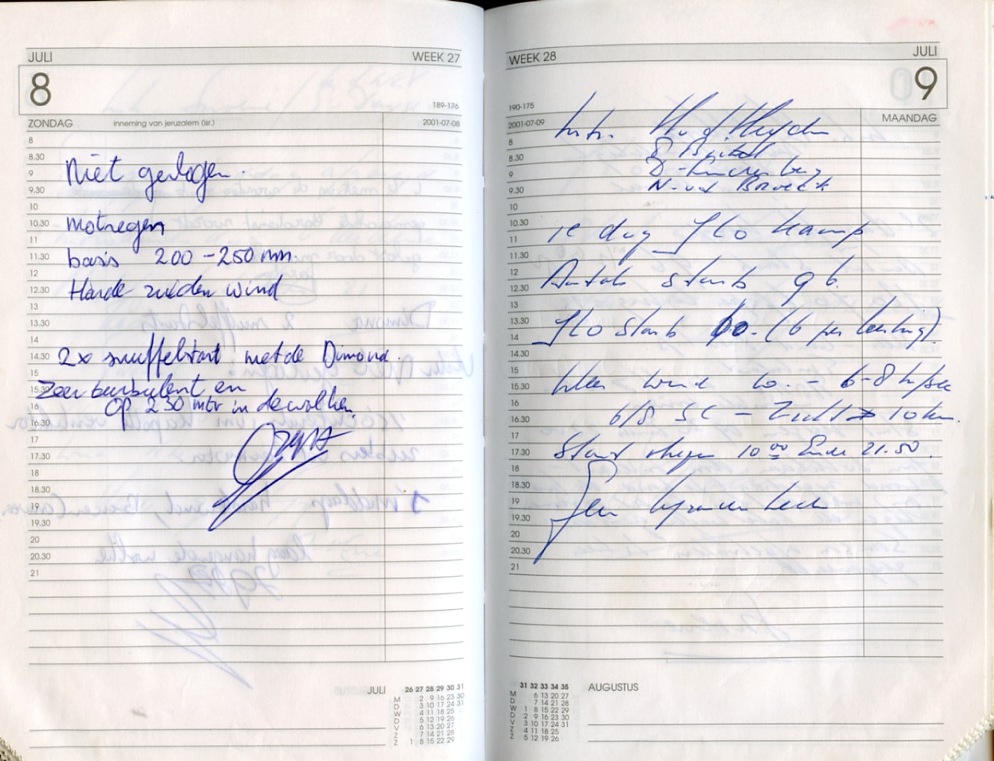 JULI WEEK 27
8
189-176
ZONDAG inneming van jeruzalem (isr.) 2001-07-08
8
8.30
9
9.30
10
10.30
11
11.30
12
12.30
13
13.30
14
14.30
15
15.30
16
16.30
17
17.30
18
18.30
19
19.30
20
20.30
21
Niet gevlogen.
motregen
basis 200 - 250 mtr.
Harde zuiden wind
2x snuffelstart met de Dimona.
Zeer turbulent en
op 230 mtr in de wolken.
JULI 26 27 28 29 30 31
M 2 9 16 23 30
D 3 10 17 24 31
W 4 11 18 25
D 5 12 19 26
V 6 13 20 27
Z 7 14 21 28
Z 1 8 15 22 29
WEEK 28 JULI
9
190-175
2001-07-09 MAANDAG
8
8.30
9
9.30
10
10.30
11
11.30
12
12.30
13
13.30
14
14.30
15
15.30
16
16.30
17
17.30
18
18.30
19
19.30
20
20.30
21
Instr. H v.d. Heyden
N. v.d. Broeck
1e dag kamp
Aantal starts 96.
starts 60. (6 per leerling).
6-8 m/sec
6/8 SC - Zicht > 10 km.
Start 10.00 Einde 21.50.
31 32 33 34 35 AUGUSTUS
M 6 13 20 27
D 7 14 21 28
W 1 8 15 22 29
D 2 9 16 23 30
V 3 10 17 24 31
Z 4 11 18 25
Z 5 12 19 26